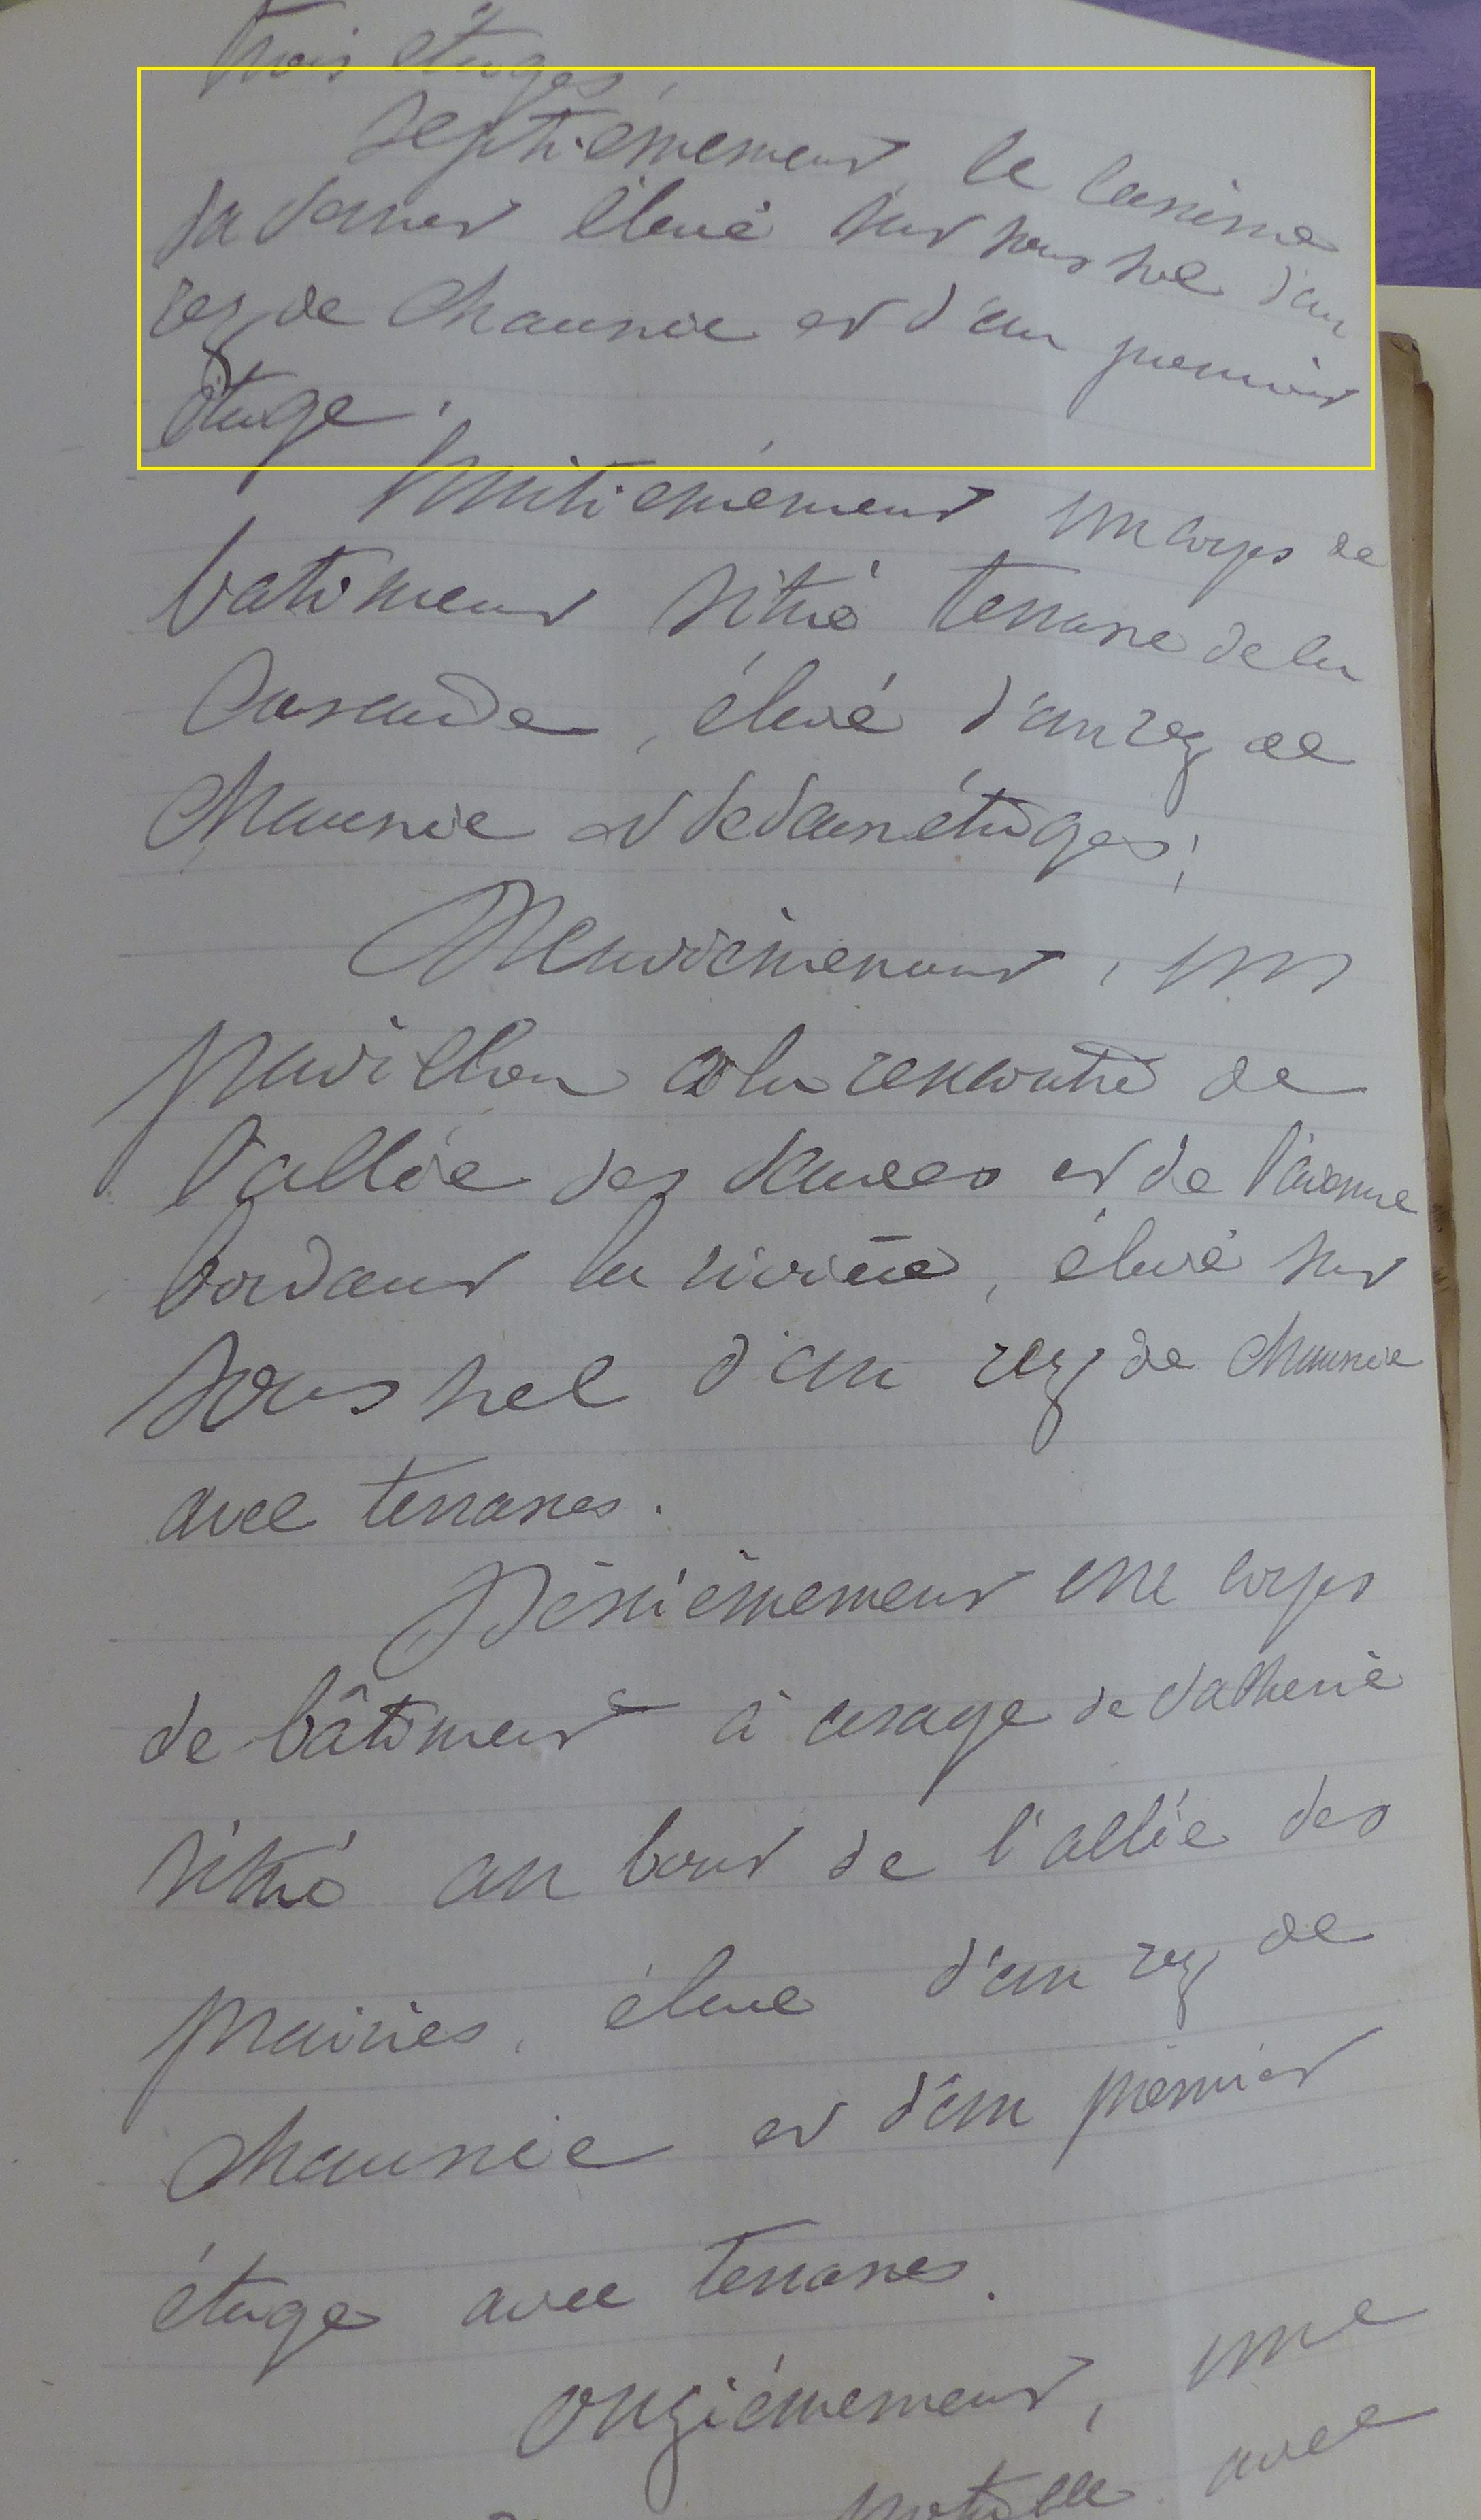 trois étages,
Septièmement, le Casino
Sadonnet élevé sur sous sol d'un
rez de chaussée et d'un premier
étage.
Huitièmement un corps de
batiment situé terrasse de la
Cascade, élevé d'un rez de
chaussée et de deux étages;
Neuvièmement, un
pavillon à la rencontre de
l'allée des dames et de l'avenue
bordant la rivière, élevé sur
sous sol d'un rez de chaussée
avec terrasses.
Dixièmement un corps
de bâtiment à usage de
situé au bout de l'allée des
prairies, élevé d'un rez de
chaussée et d'un premier
étage avec terrasses.
Onzièmement, une
avec